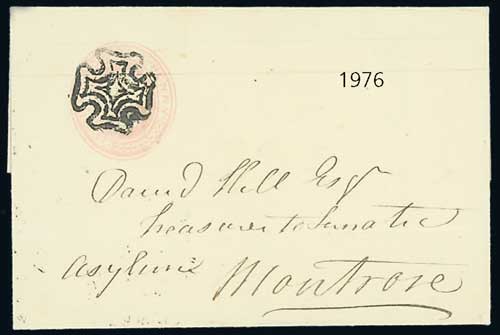 1976
David Hill Esqr
Treasurer to Lunatic
Asylum Montrose